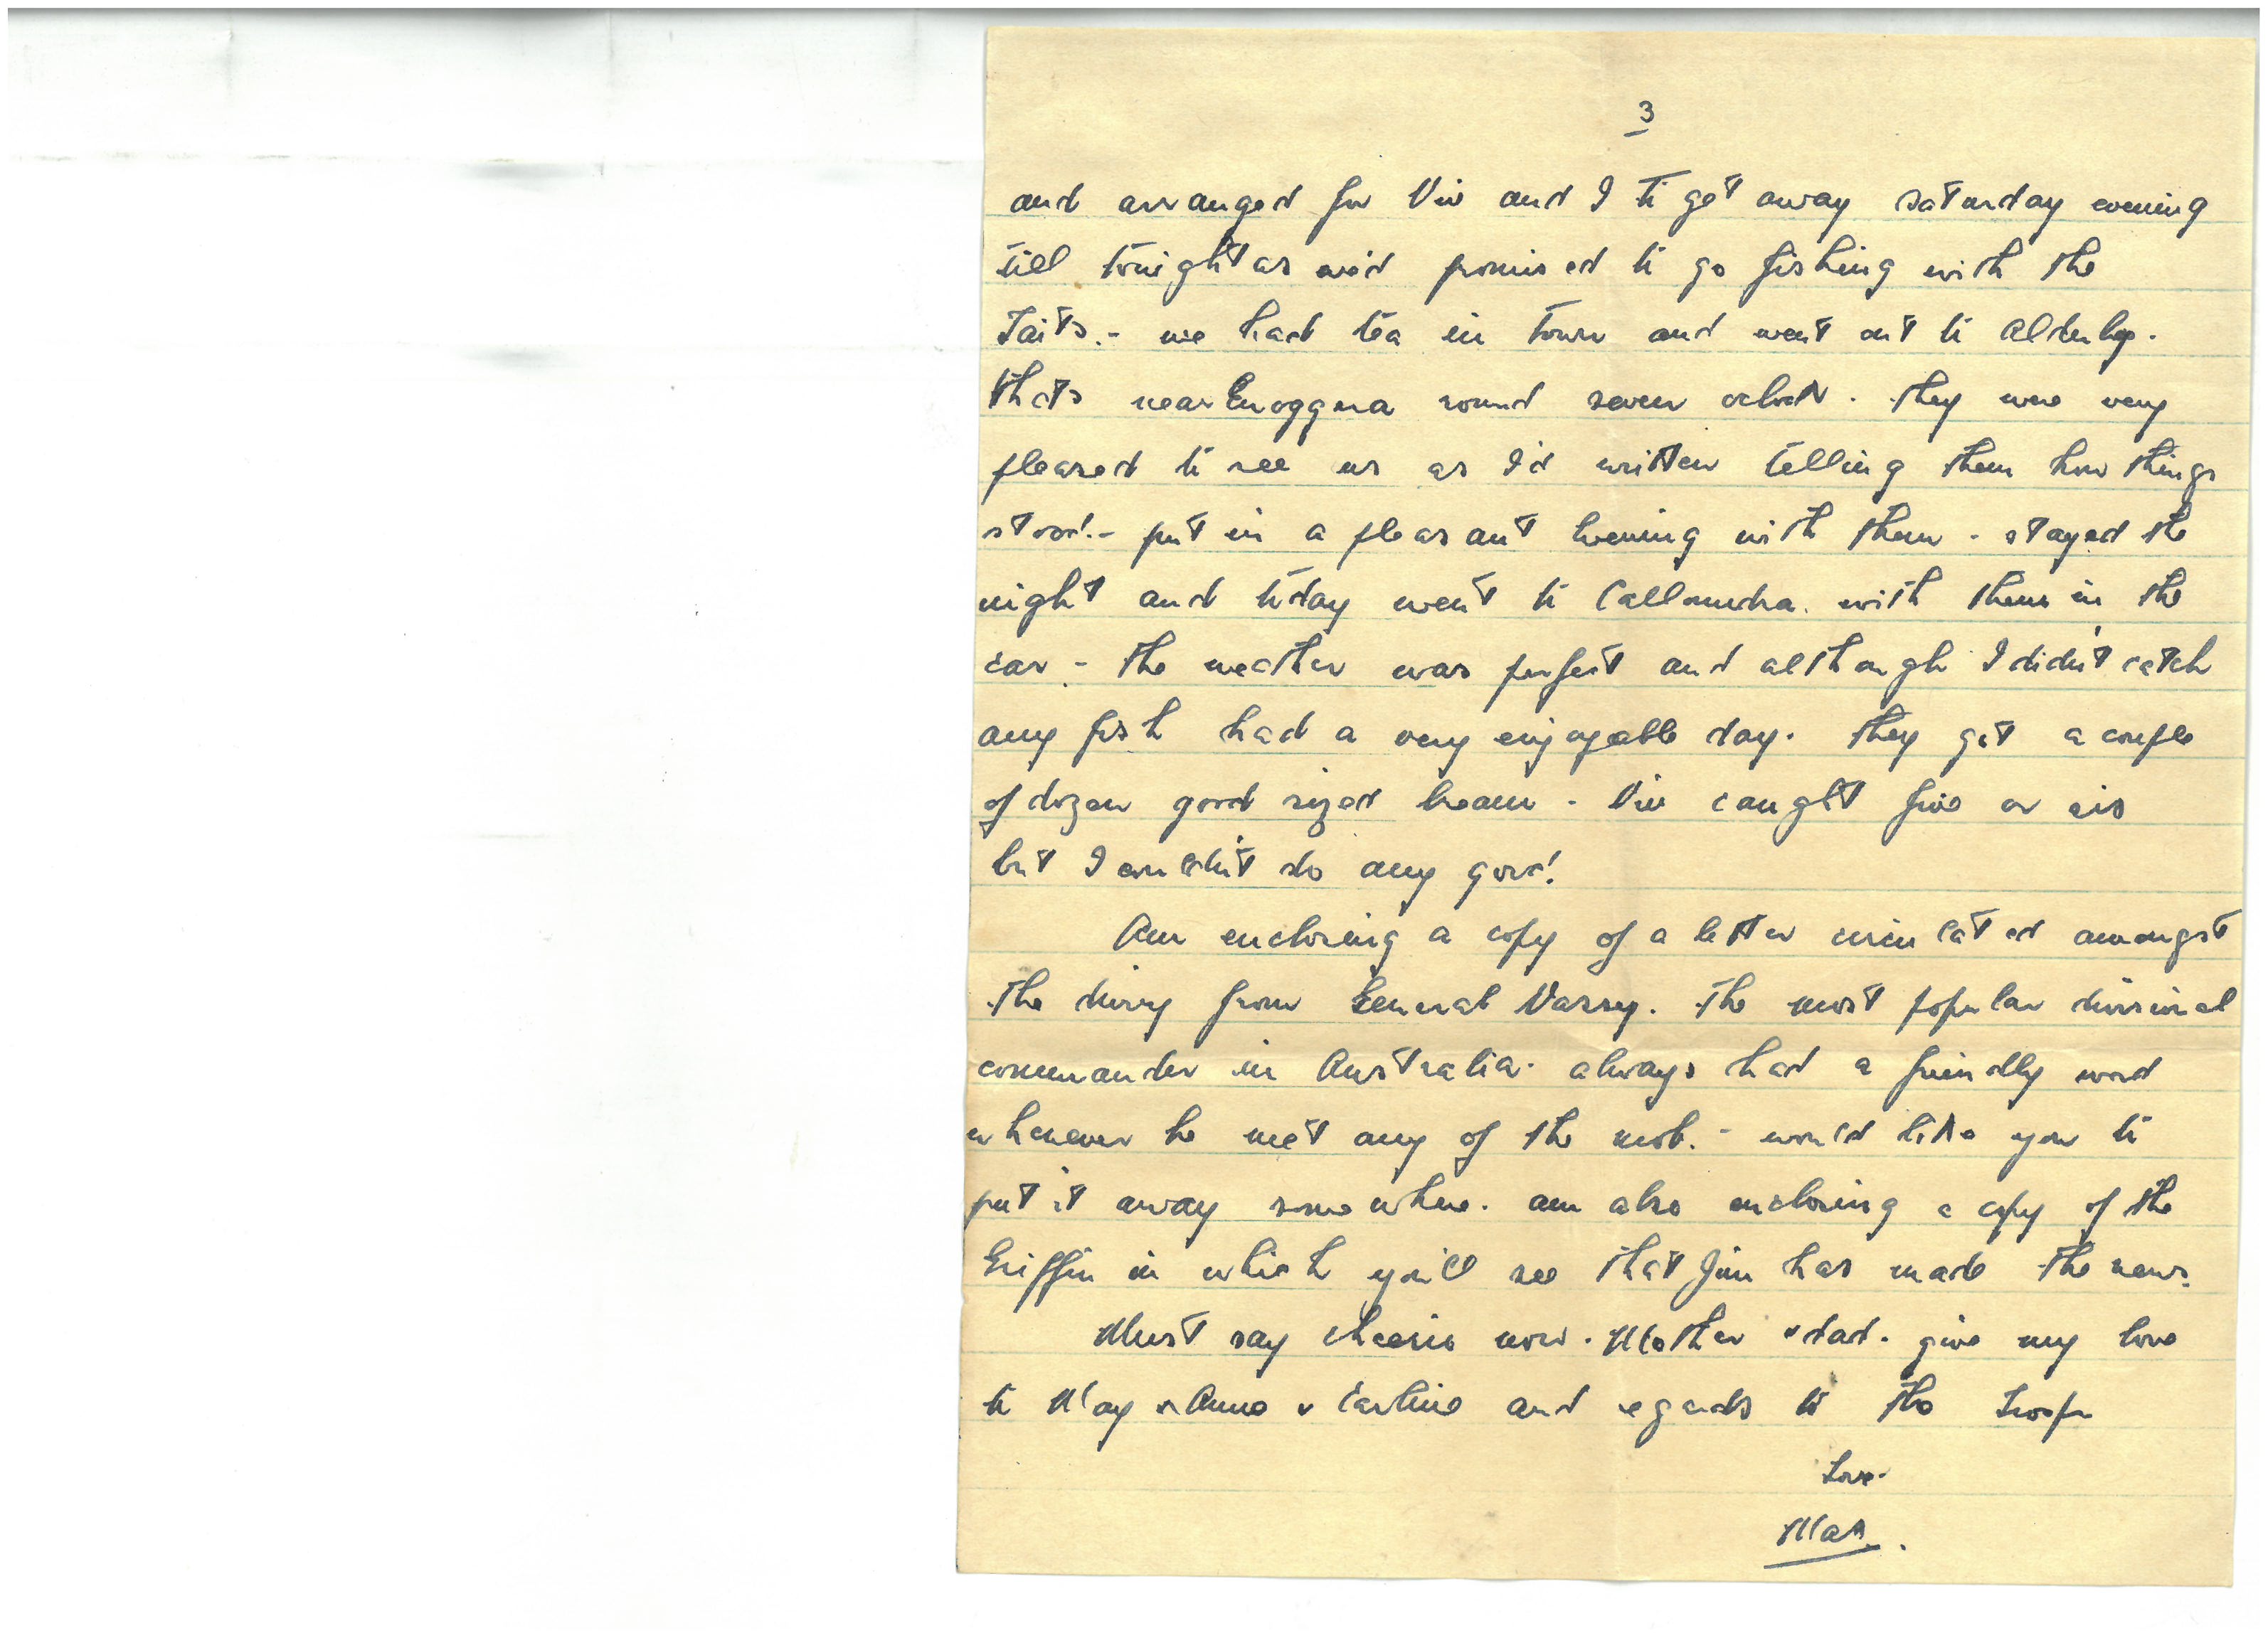 3
and arranged for Viv and I to get away saturday evening
till tonight as we'd promised to go fishing with the
Taits. - we had tea in town and went out to Alderley.
thats near Enoggera round seven oclock. they were very
pleased to see us as I'd written telling them how things
stood. - put in a pleasant evening with them - stayed the
night and today went to Calloundra. with them in the
car - the weather was perfect and although I didn't catch
any fish had a very enjoyable day. they got a couple
of dozen good sized bream - Viv caught five or six
but I couldn't do any good!
Am enclosing a copy of a letter circulated amongst
the divvy from General Vasey. The most popular divisional
commander in Australia. always had a friendly word
whenever he met any of the mob. - would like you to
put it away somewhere. am also enclosing a copy of the
Griffin in which you'll see that Jim has made the news.
Must say cheerio now. Mother & dad. give my love
to May & Anne & and regards to the troops
Love.